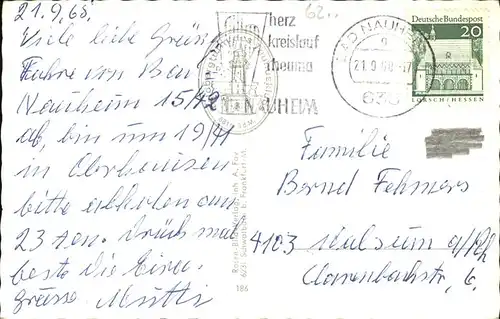 21.9.68,
Viele liebe Grüße
Fahre von Bad
Nauheim 15/42
ab, bin um 19/41
in Oberhausen
bitte abholen am
23 ten.
beste die
Grüsse Mutti
62..
herz
kreislauf
rheuma
BAD NAUHEIM
21.9.68-17
635
Deutsche Bundespost
20
LORSCH/HESSEN
Familie
Bernd Fehmers
4103 Walsum a/Rh
Clarenbachstr, 6,
186